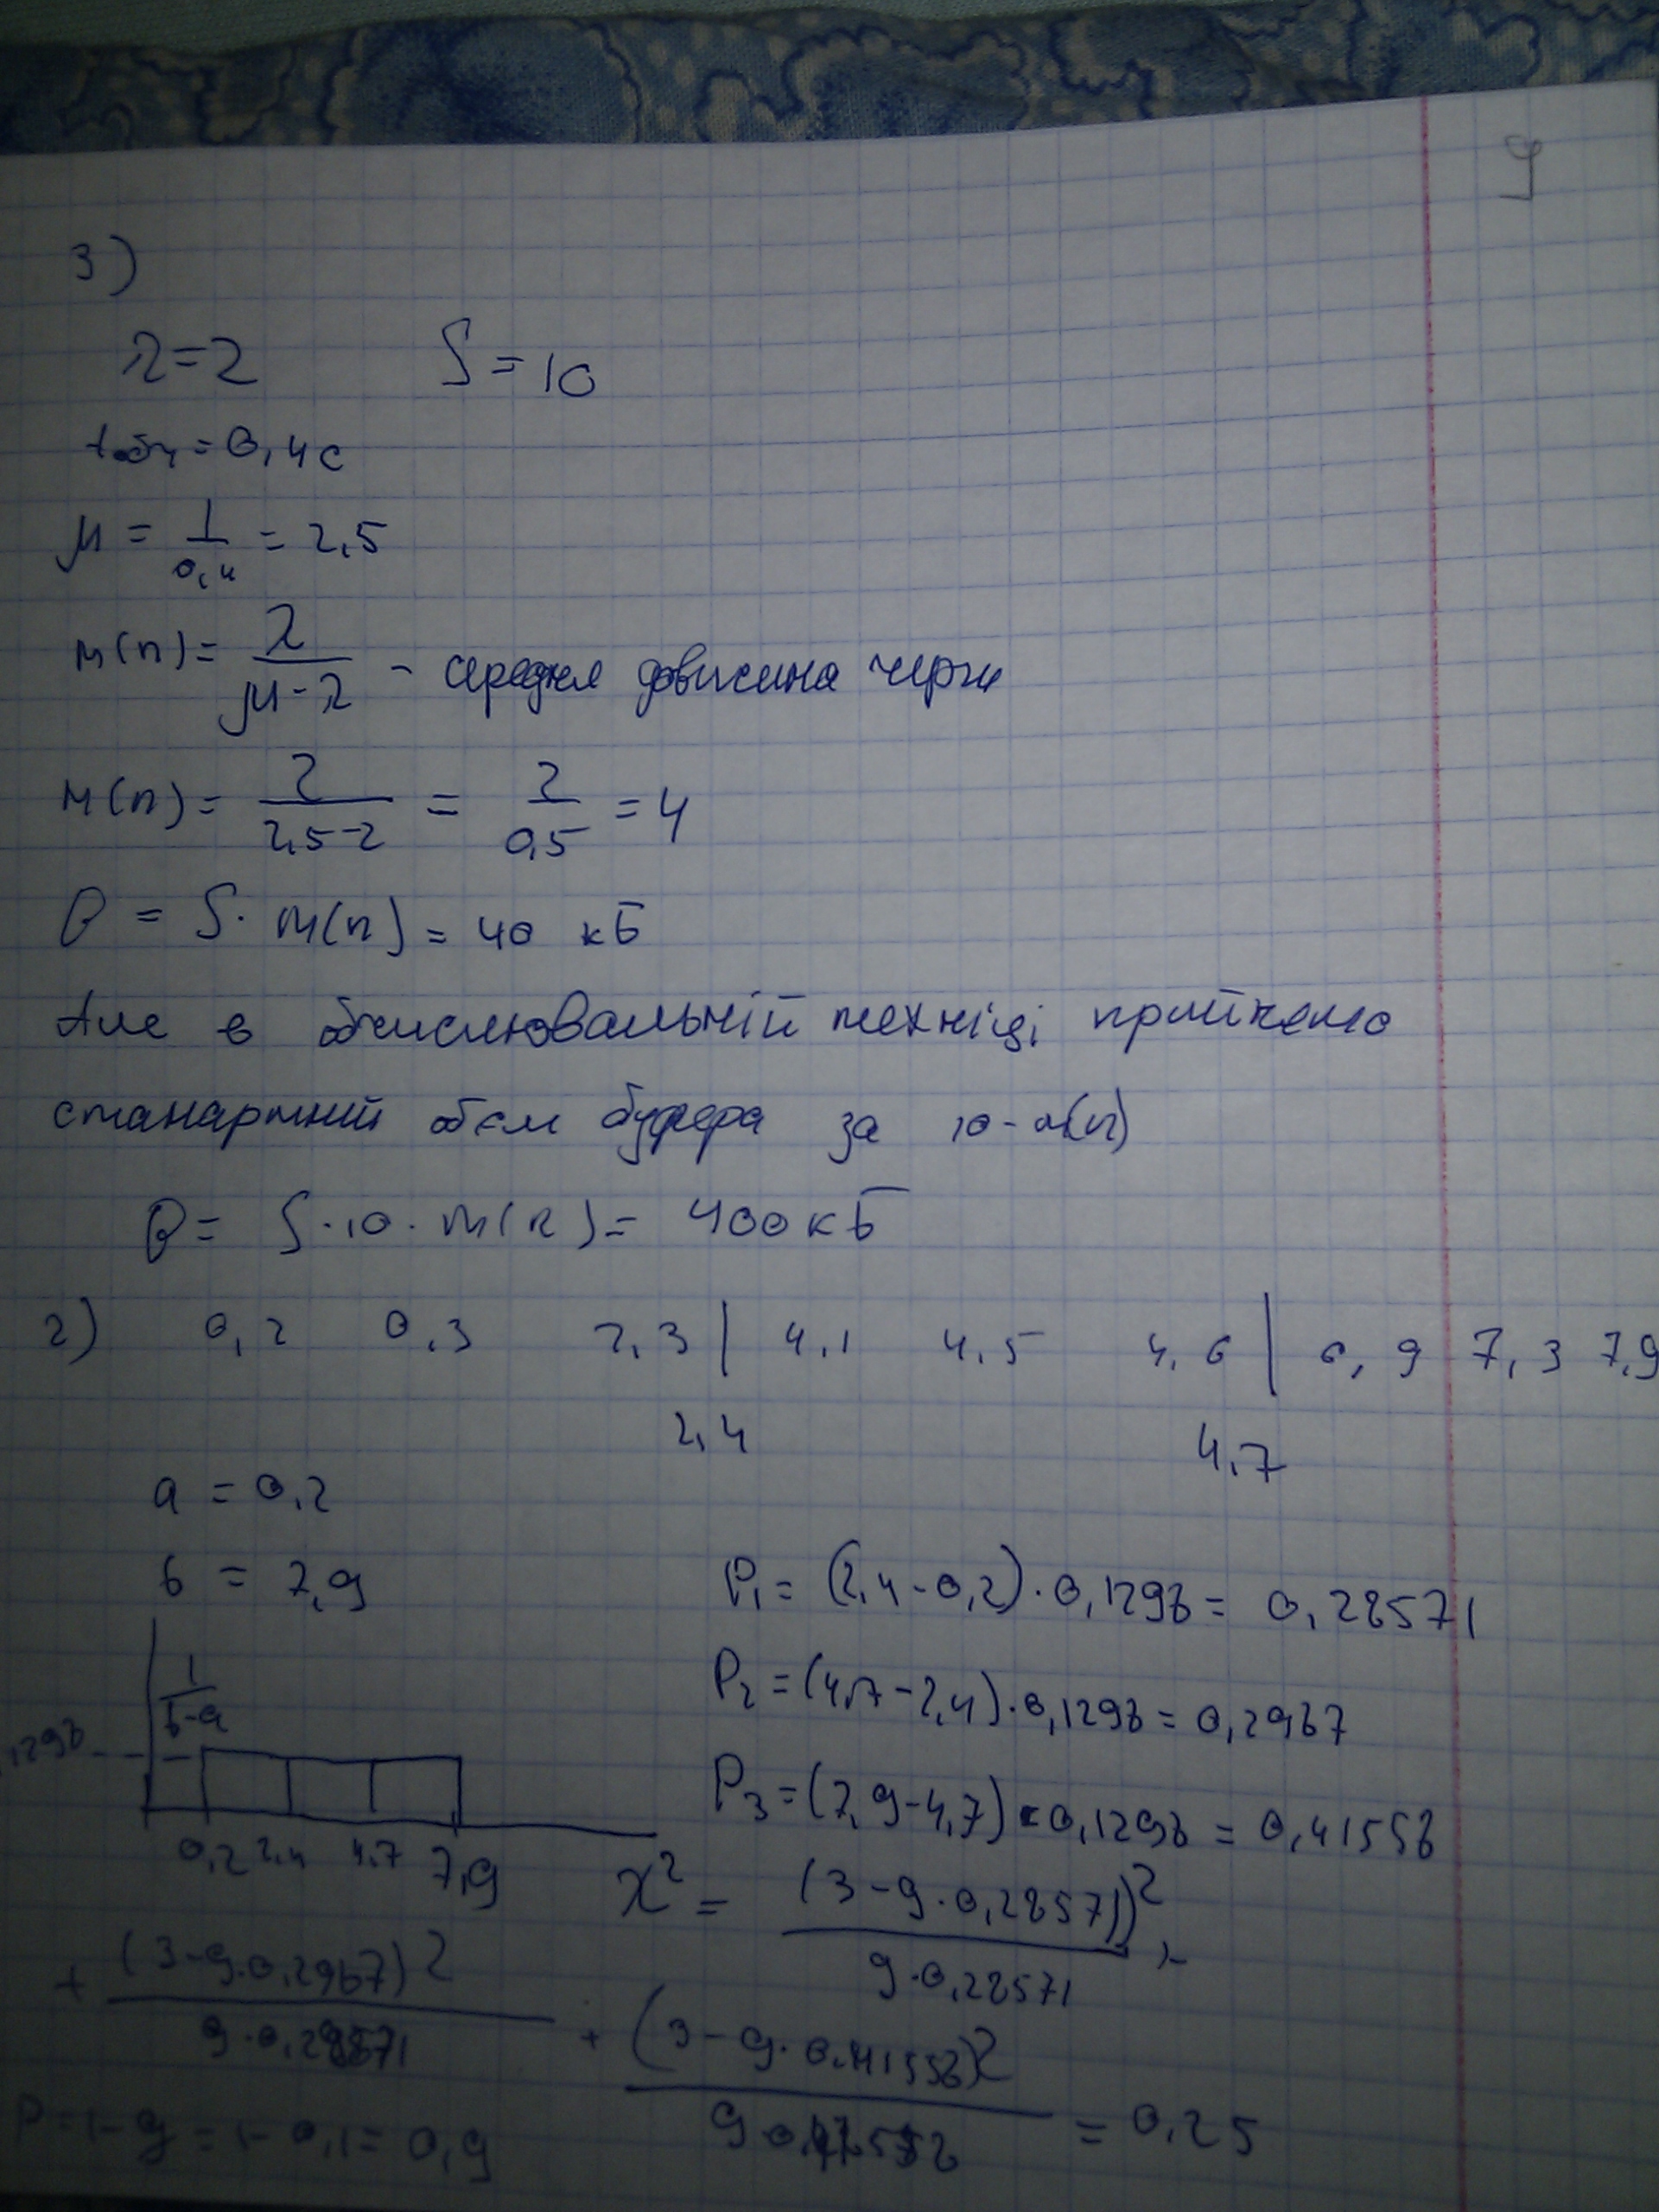 9
3)
λ=2 S=10
tобч=0,4с
μ = 1/0,4 = 2,5
M(n)= λ/(μ-λ) - середня довжина черги
M(n)= 2/(2,5-2) = 2/0,5 =4
Q = S· M(n)= 40 кБ
Але в обчислювальній техніці прийнято
станартний обєм буфера за 10-M(n)
Q= S·10·M(n)= 400кБ
2) 0,2 0,3 2,3 | 4,1 4,5 4,6 | 6,9 7,3 7,9
2,4 4,7
a = 0,2
b = 7,9
P1= (2,4-0,2)·0,1298= 0,28571
1/(b-a)
P2=(4,7-2,4)·0,1298=0,2987
,1298
P3=(7,9-4,7)·0,1298 = 0,41558
0,2 2,4 4,7 7,9
χ²= (3-9·0,28571)²/(9·0,28571) +
+ (3-9·0,2987)²/(9·0,29871) + (3-9·0,41558)²/(9·0,41558) = 0,25
P=1-g=1-0,1=0,9